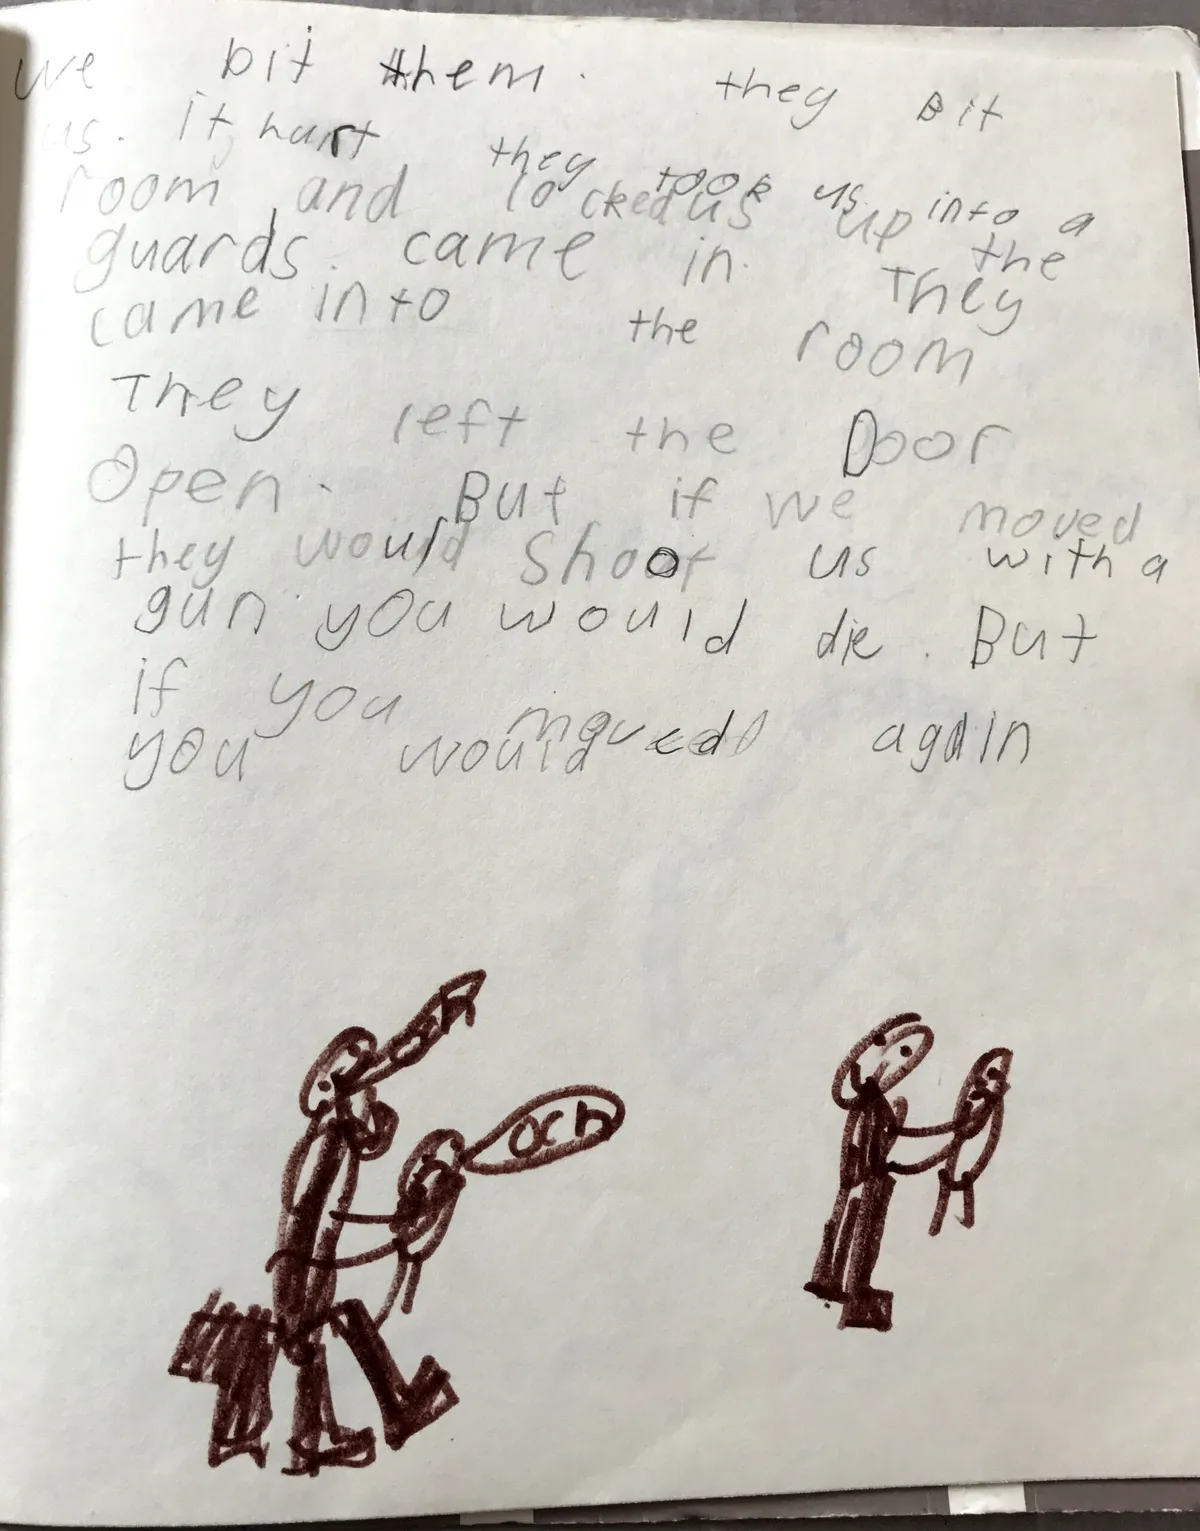 we bit them. they Bit
us. it hurt they took us into a
room and locked us up the
guards. came in. They
came into the room
They left the Door
Open. But if we moved
they would shoot us with a
gun you would die. But
if you moved again
you would
och
och